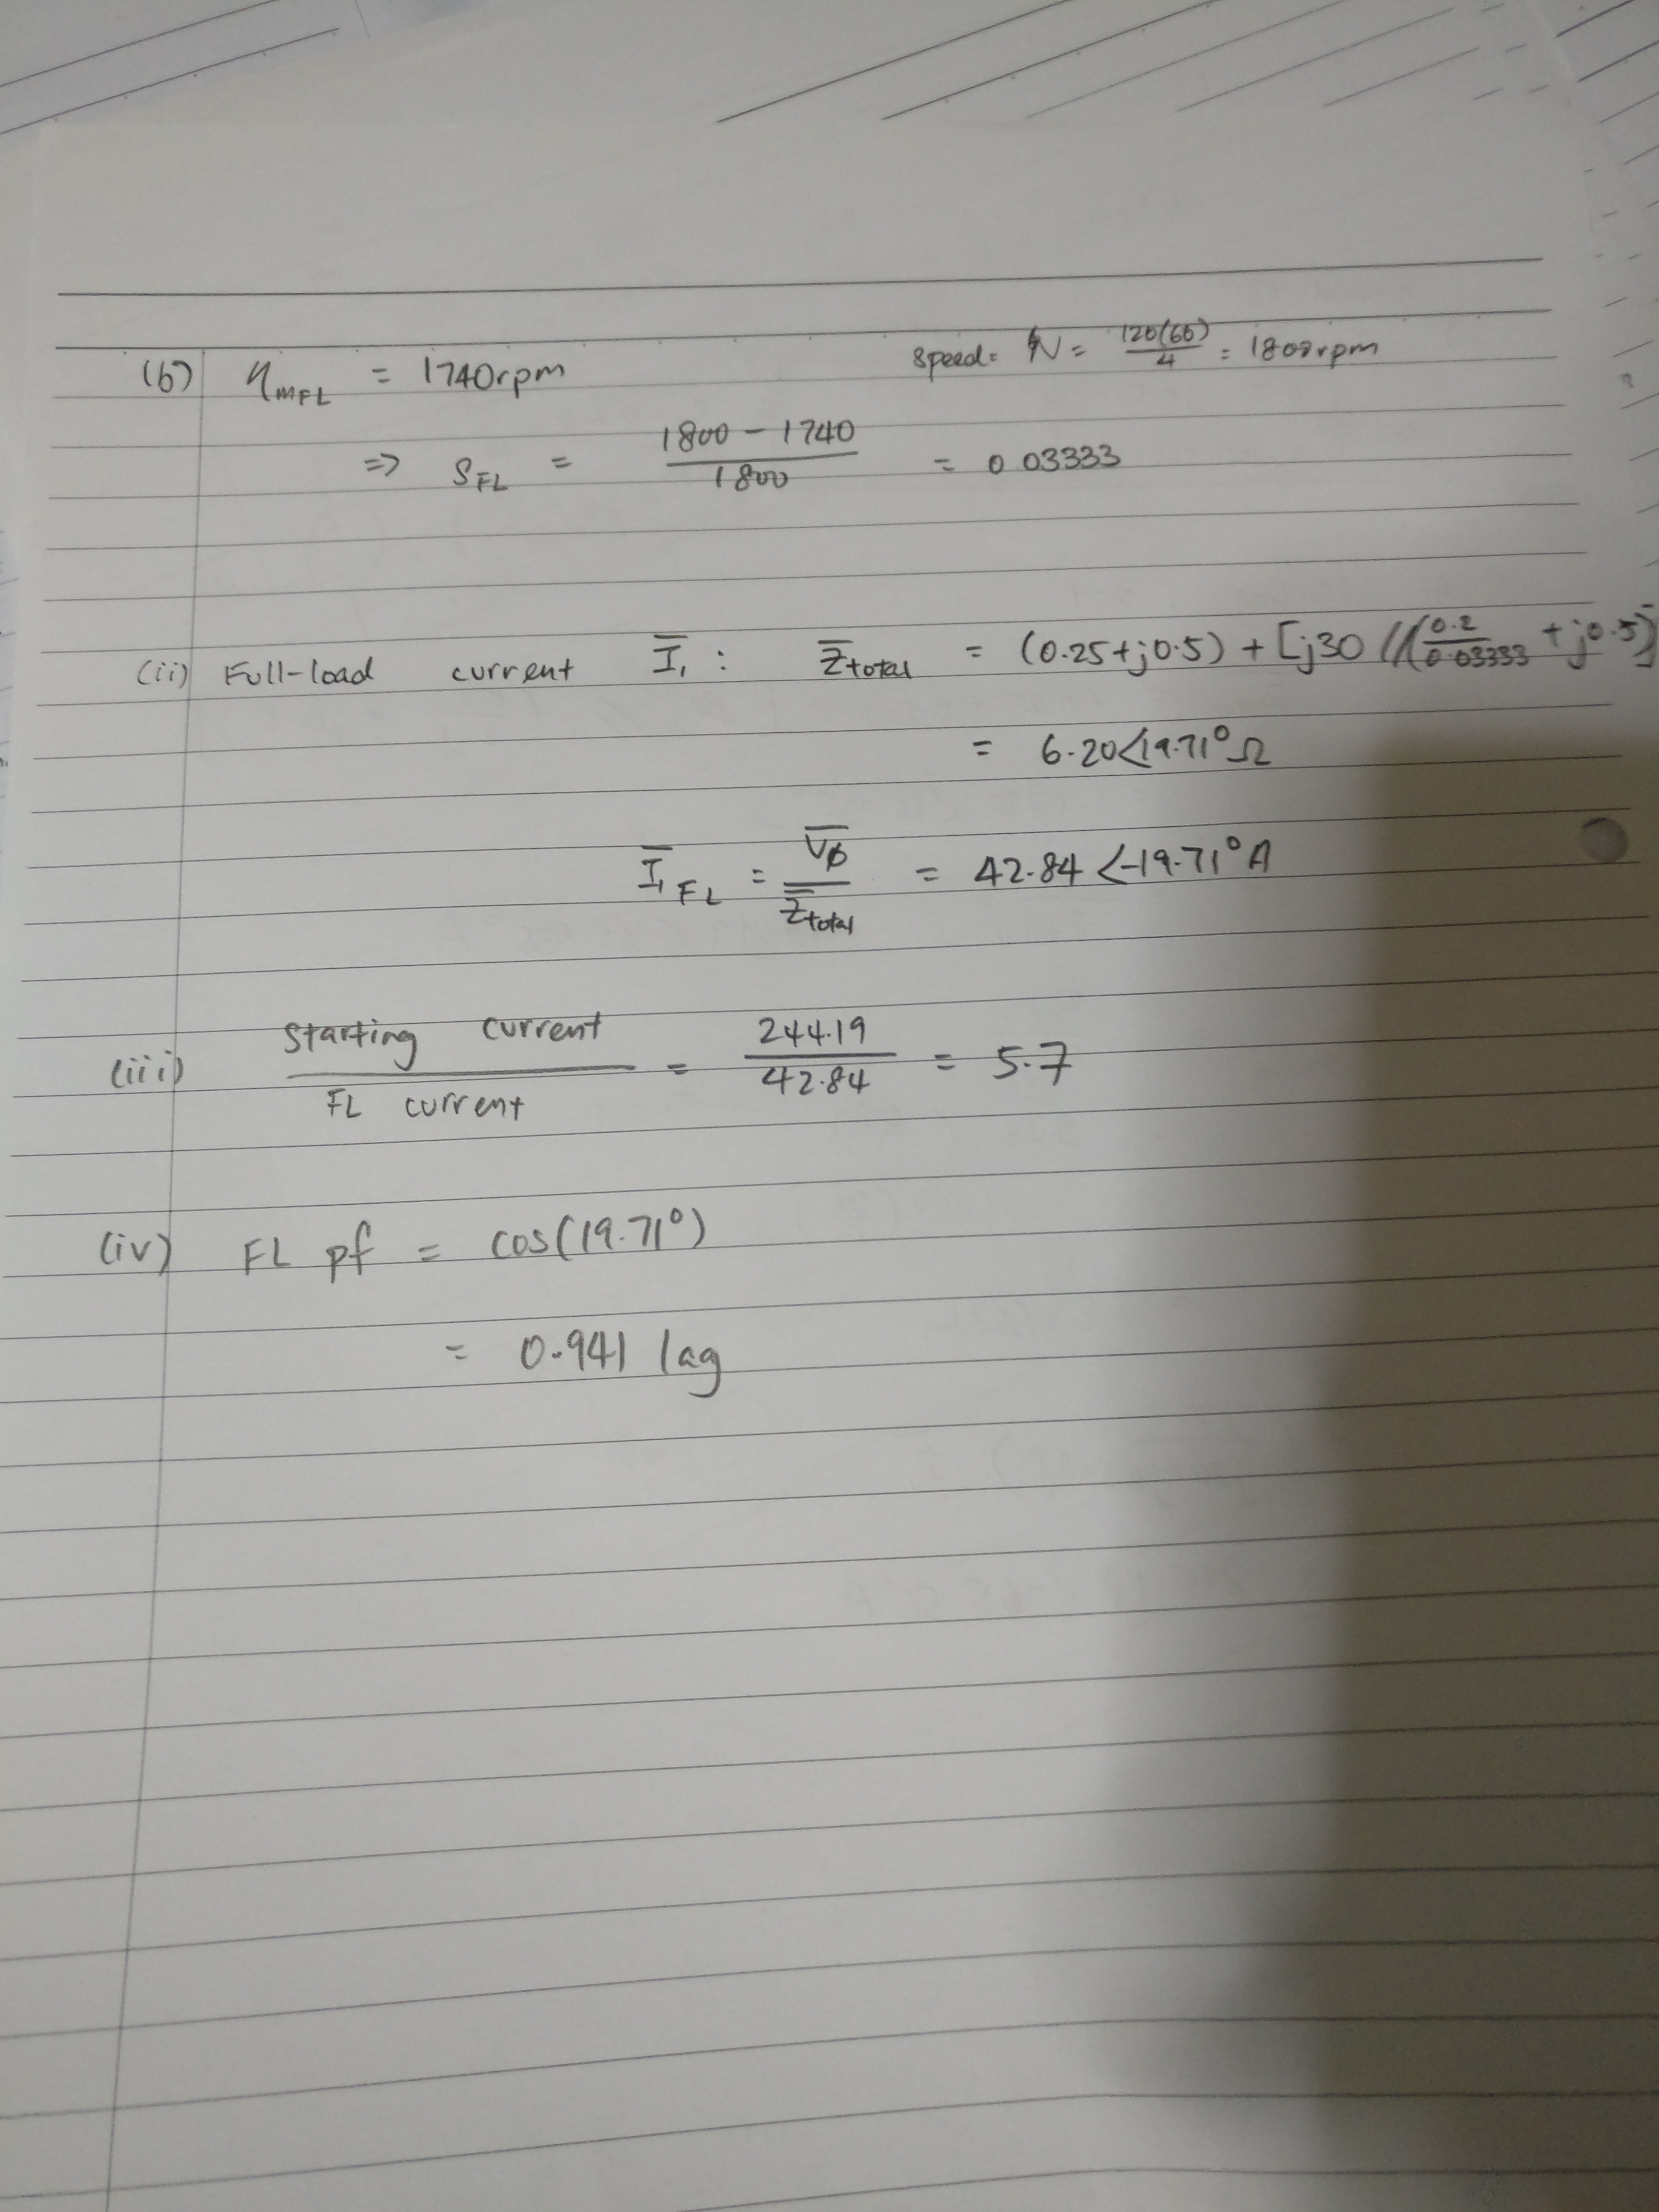 (b) ηmFL = 1740rpm speed= N = 120(60)/4 = 1800rpm
=> SFL = 1800 - 1740 / 1800 = 0 03333
(ii) Full-load current I̅₁ : Z̅total = (0.25+j0.5) + [j30 //(0.2/0.03333 + j0.5)]
= 6.20<19.71° Ω
I̅₁ FL = V̅ϕ / Z̅total = 42.84 <-19.71° A
(iii) Starting current / FL current = 244.19 / 42.84 = 5.7
(iv) FL pf = cos(19.71°)
= 0.941 lag